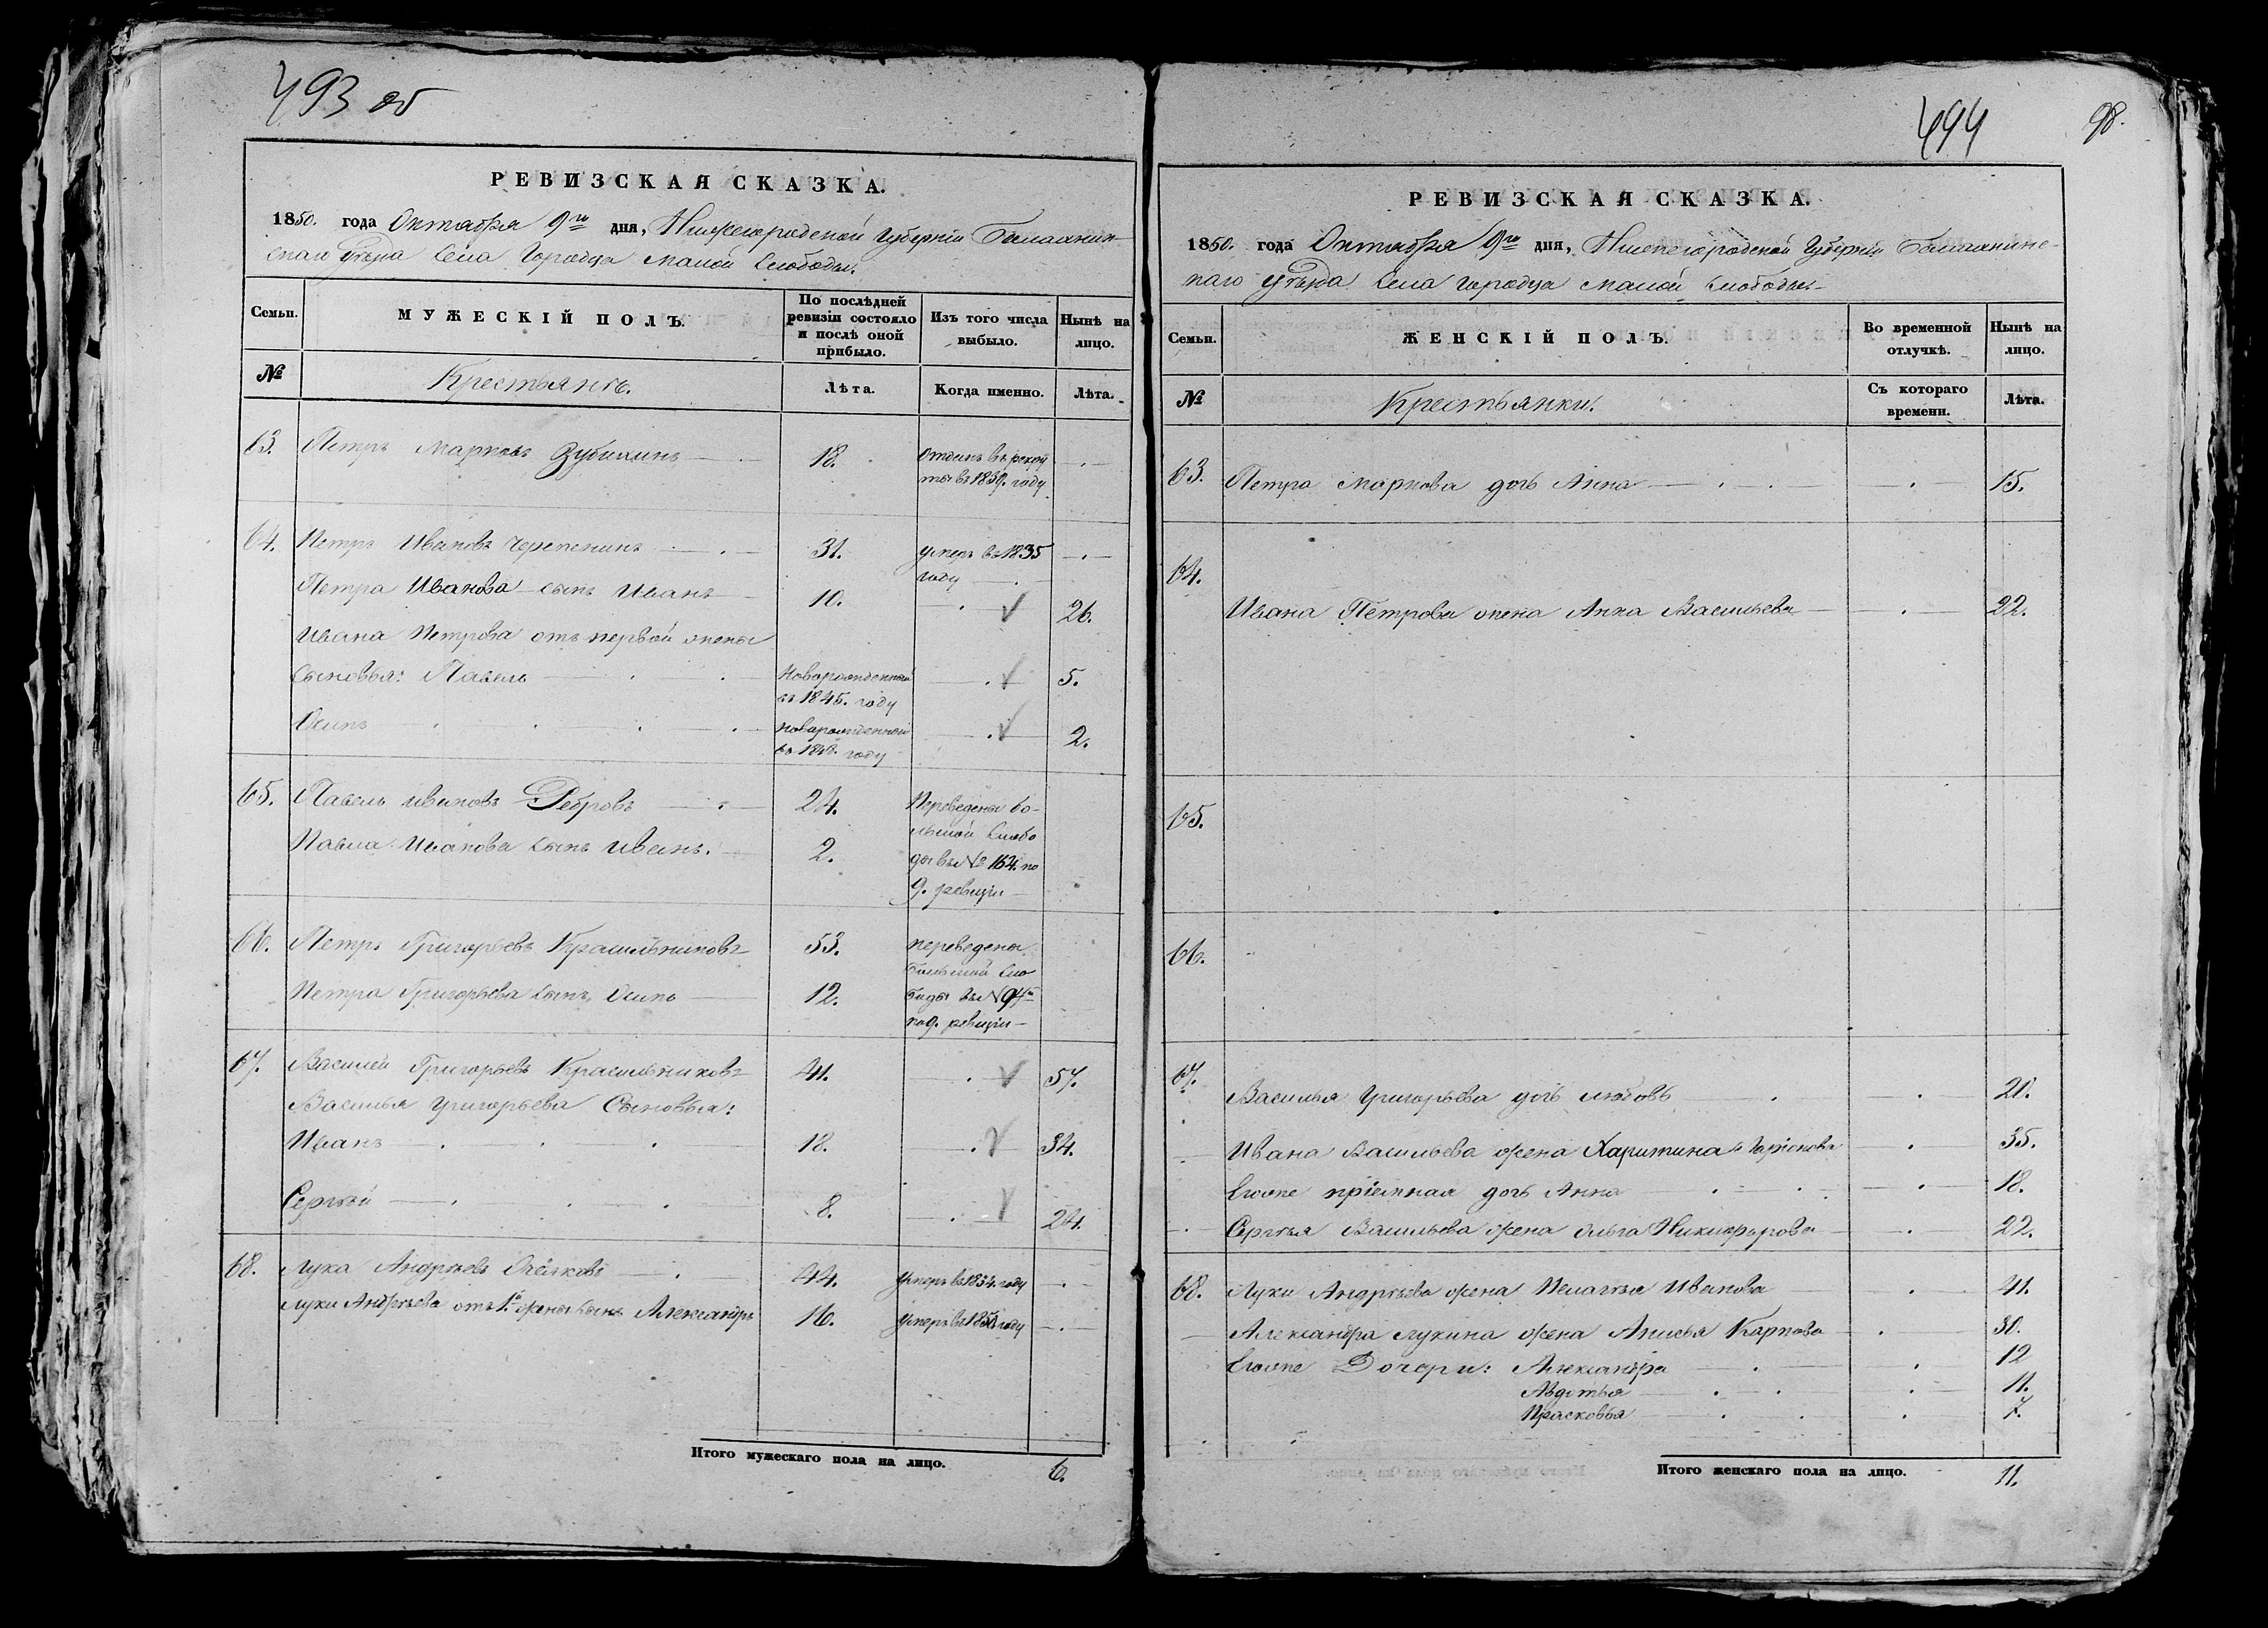 493 об
РЕВИЗСКАЯ СКАЗКА.
1850. года Октября 9го дня, Нижегородской Губерніи Балахнин-
скаго Уѣзда Села Городца малой Слободы.
Семьи.
МУЖЕСКІЙ ПОЛЪ.
По послѣдней ревизіи состояло и послѣ оной прибыло.
Изъ того числа выбыло.
Нынѣ на лицо.
№
Крестьянъ.
Лѣта.
Когда именно.
Лѣта.
63. Петръ Марковъ 18. Отданъ въ рекру
ты въ 1839. году
64. Петръ Ивановъ Черепенинъ 31. умеръ въ 1835
году
Петра Иванова сынъ Иванъ 10. 26.
Ивана Петрова отъ первой жены
Сыновья: Павелъ Новорожденный 5.
въ 1845. году
Осипъ новорожденный 2.
въ 1848. году
65. Павелъ Ивановъ Ребровъ 24. Переведены бо-
льшой слобо
Павла Иванова сынъ Иванъ. 2. ды въ № 164. по
9. ревизіи
66. Петръ Григорьевъ Красильниковъ 53. переведены
большой сло
Петра Григорьева сынъ Осипъ 12. боды въ №
по 9. ревизіи
67. Василей Григорьевъ Красильниковъ 41. 57.
Василья Григорьева Сыновья:
Иванъ 18. 34.
Сергѣй 8. 24.
68. Лука Андреевъ 44. умеръ въ 1834 году
Луки Андрѣева отъ 1й жены сынъ Александръ 16. умеръ въ 1850 году
Итого мужескаго пола на лицо. 6.
494
98.
РЕВИЗСКАЯ СКАЗКА.
1850. года Октября 9го дня, Нижегородской Губерніи Балахнинс-
каго Уѣзда Села Городца малой слободы.
Семьи.
ЖЕНСКІЙ ПОЛЪ.
Во временной отлучкѣ.
Нынѣ на лицо.
№
Крестьянки.
Съ котораго времени.
Лѣта.
63. Петра Маркова дочь Анна 15.
64.
Ивана Петрова жена Анна Васильева 22.
65.
66.
67. Василья Григорьева дочь Любовь 20.
Ивана Васильева жена Харитина 35.
Егоже пріемная дочь Анна 18.
Сергѣя Васильева жена Ольга Никифорова 22.
68. Луки Андрѣева жена Пелагѣя Иванова 41.
Александра Лукина жена Анисья Карпова 30.
Егоже Дочери: Александра 12
Авдотья 11.
Прасковья 7.
Итого женскаго пола на лицо. 11.